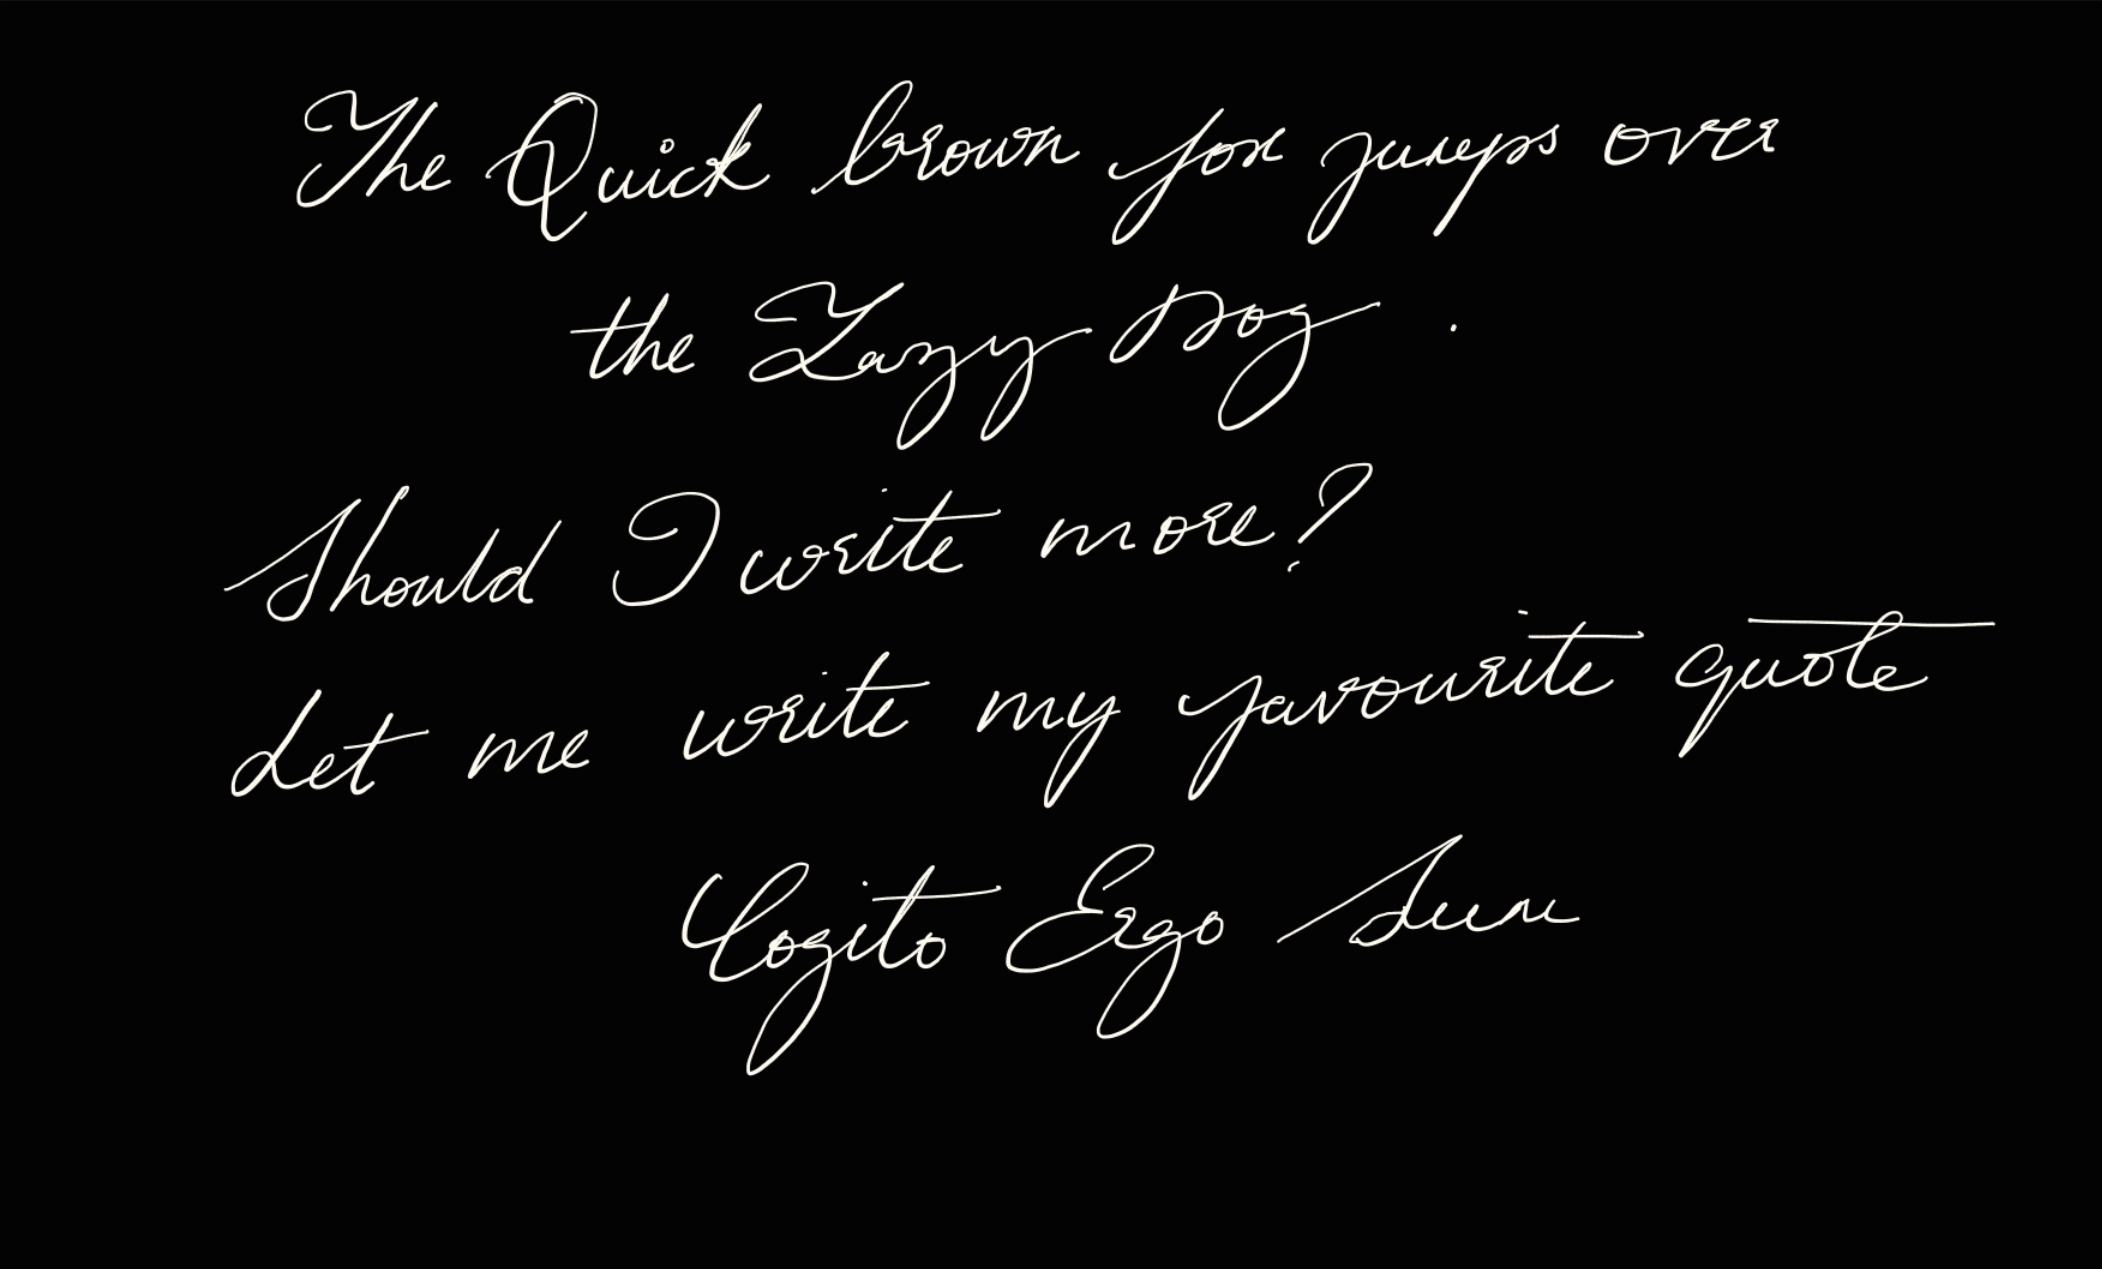 The Quick brown fox jumps over
the Lazy Dog .
Should I write more?
Let me write my favourite quote
Cogito Ergo Sum